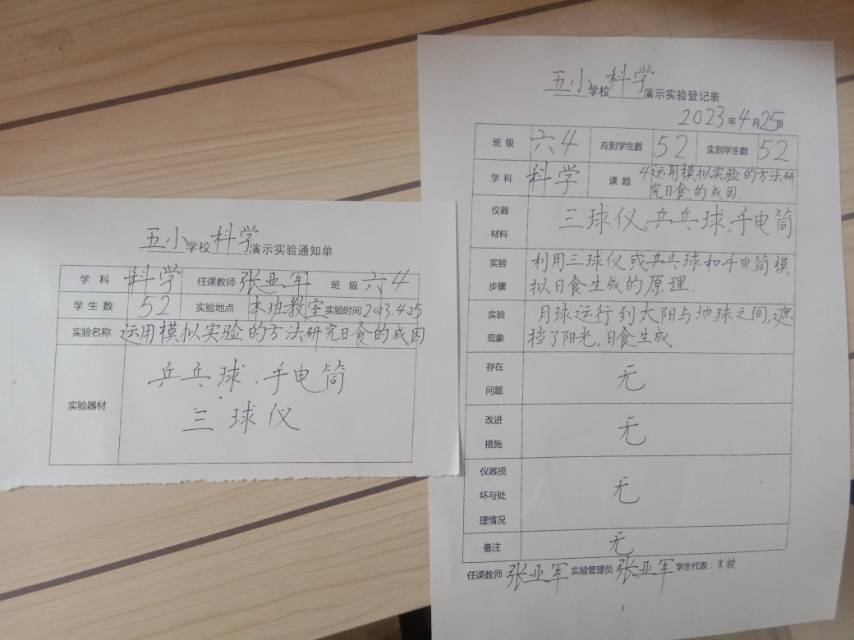 五小学校科学演示实验通知单
学科 科学 任课教师 张亚军 班级 六4
学生数 52 实验地点 本班教室 实验时间 2023.4.25
实验名称 运用模拟实验的方法研究日食的成因
实验器材 乒乓球、手电筒
三球仪
五小学校科学演示实验登记表
2023年4月25日
班级 六4 应到学生数 52 实到学生数 52
学科 科学 课题 4运用模拟实验的方法研
究日食的成因
仪器材料 三球仪、乒乓球、手电筒
实验 利用三球仪或乒乓球和手电筒模
步骤 拟日食生成的原理.
实验 月球运行到太阳与地球之间,遮
现象 挡了阳光,日食生成.
存在问题 无
改进措施 无
仪器损坏与处理情况 无
备注 无
任课教师 张亚军 实验管理员 张亚军 学生代表: